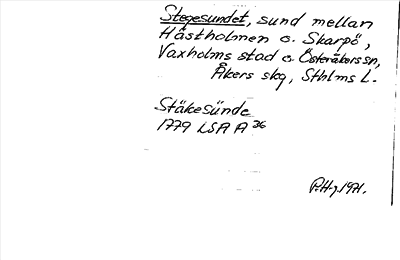 Stegesundet, sund mellan
Hästholmen o. Skarpö,
Vaxholms stad o. Österåkers sn,
Åkers skg, Sthlms L.
Stäkesünde
1779 LSA A 36
P.H-g. 1971.